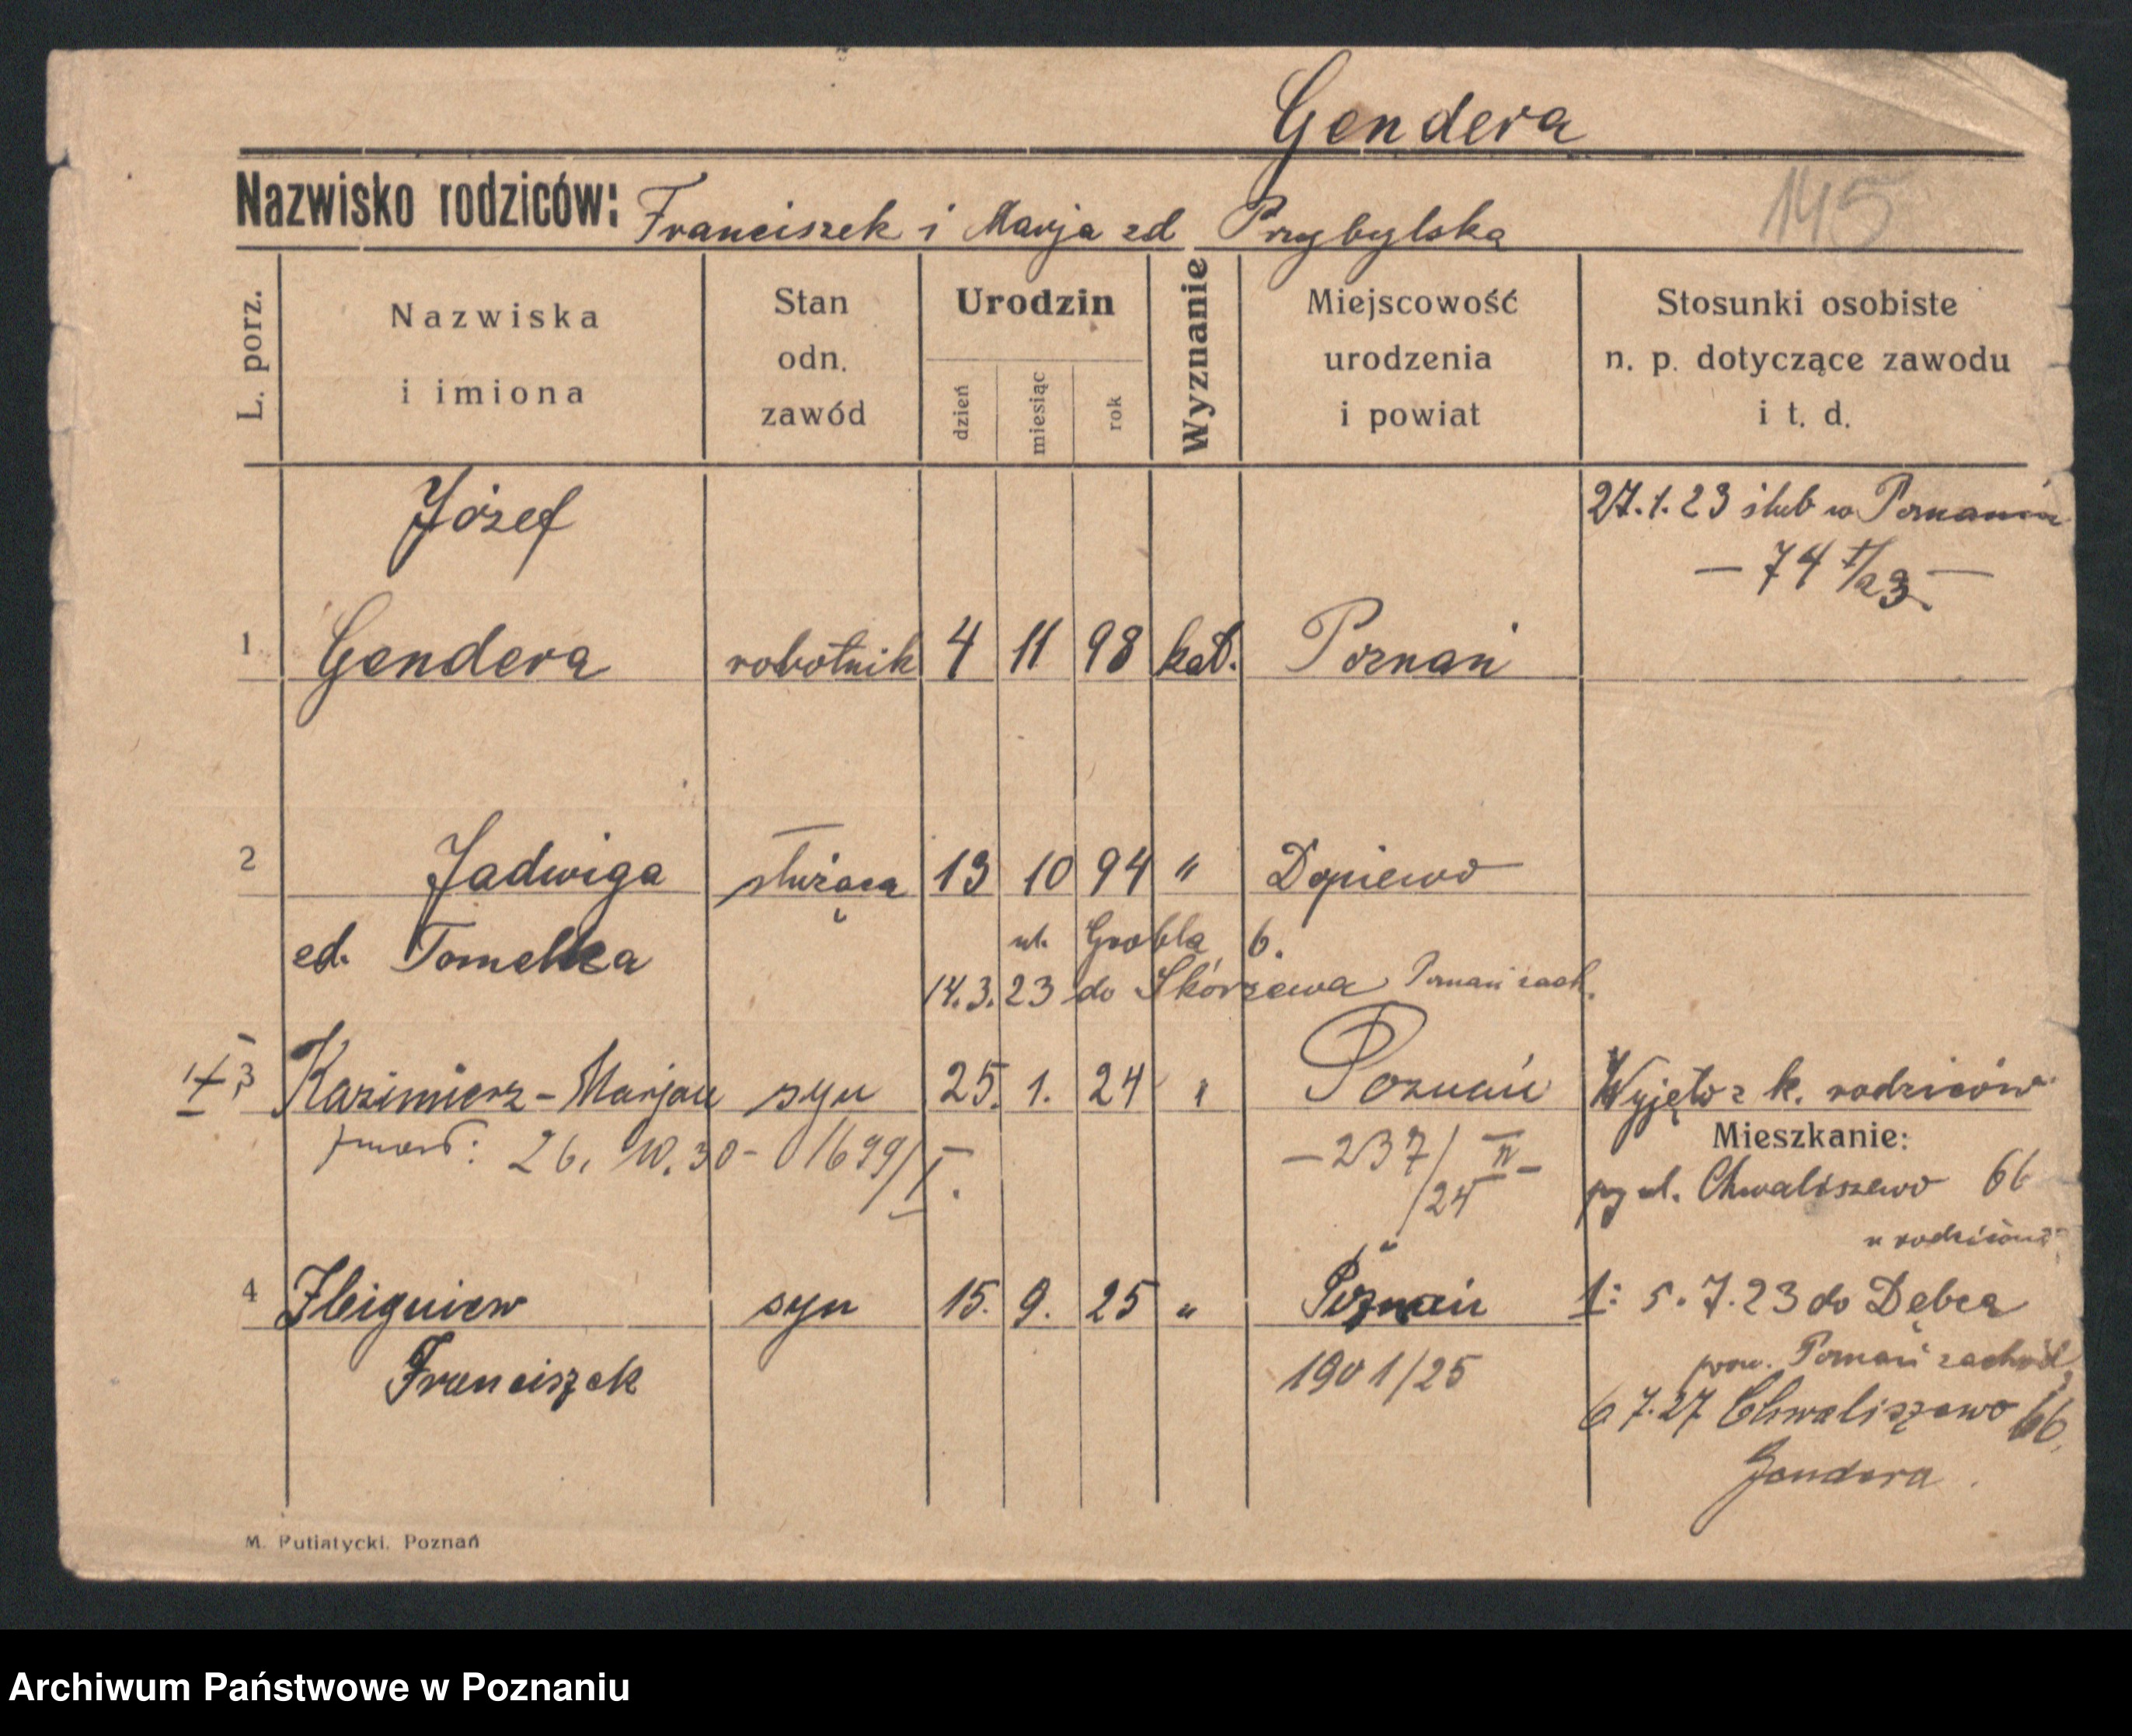 Gendera
145
Nazwisko rodziców: Franciszek i Marja zd Przybylska
L. porz.
Nazwiska i imiona
Stan odn. zawód
Urodzin
dzień
miesiąc
rok
Wyznanie
Miejscowość urodzenia i powiat
Stosunki osobiste n. p. dotyczące zawodu i t. d.
Józef
27.1.23 ślub w Poznaniu
— 74 I/23 —
1 Gendera robotnik 4 11 98 kat. Poznań
2 Jadwiga służąca 13 10 94 " Dopiewo
zd. Tomelka
ul. Grobla 6.
14.3.23 do Skórzewa Poznań zach.
3 Kazimierz-Marjan syn 25. 1. 24 " Poznań Wyjęto z k. rodziców
Mieszkanie:
zmarł: 26. 10. 30 - 1699/I.
— 237/II —
/24
ul. Chwaliszewo 66
u rodziców
4 Zbigniew syn 15. 9. 25 " Poznań 1: 5.7.23 do Dębca
Franciszek 1901/25
pow. Poznań zachód
6 7.27 Chwaliszewo 66,
Gendera.
M. Putiatycki. Poznań
Archiwum Państwowe w Poznaniu